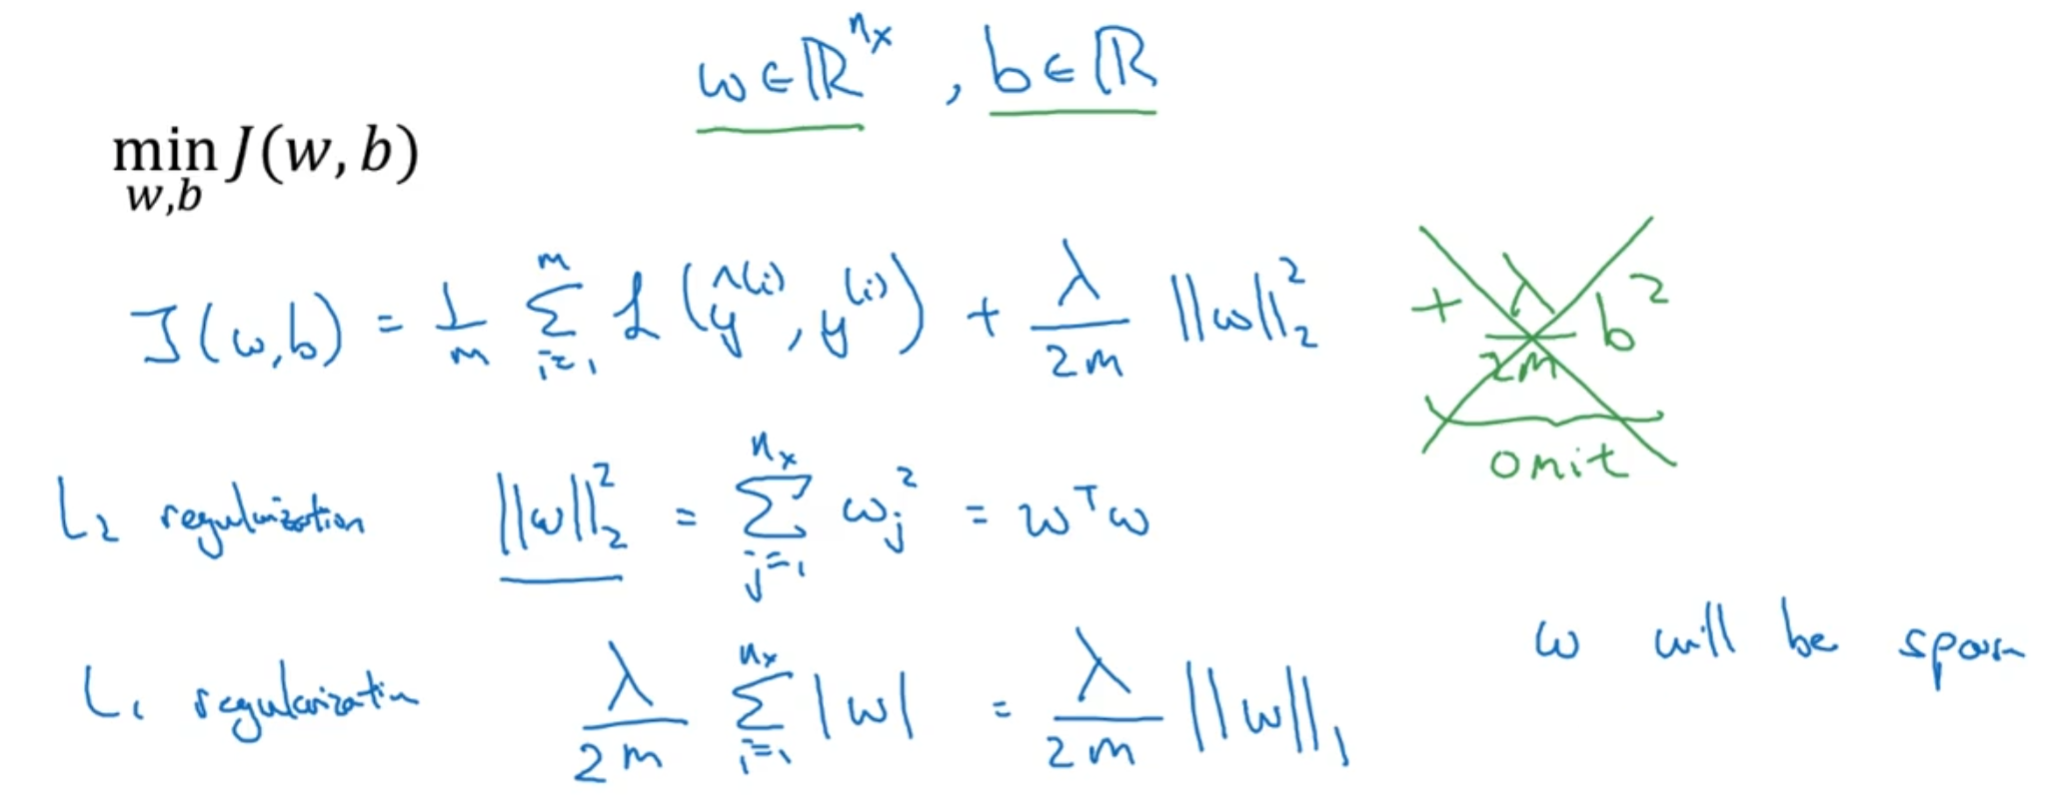 w ∈ ℝ^{n_x}, b ∈ ℝ
min_{w,b} J(w, b)
J(w,b) = 1/m ∑_{i=1}^{m} ℒ(ŷ^{(i)}, y^{(i)}) + λ/2m ||w||_2^2 + λ/2m b^2
omit
L_2 regularization ||w||_2^2 = ∑_{j=1}^{n_x} w_j^2 = w^T w
w will be
L_1 regularization λ/2m ∑_{i=1}^{n_x} |w| = λ/2m ||w||_1